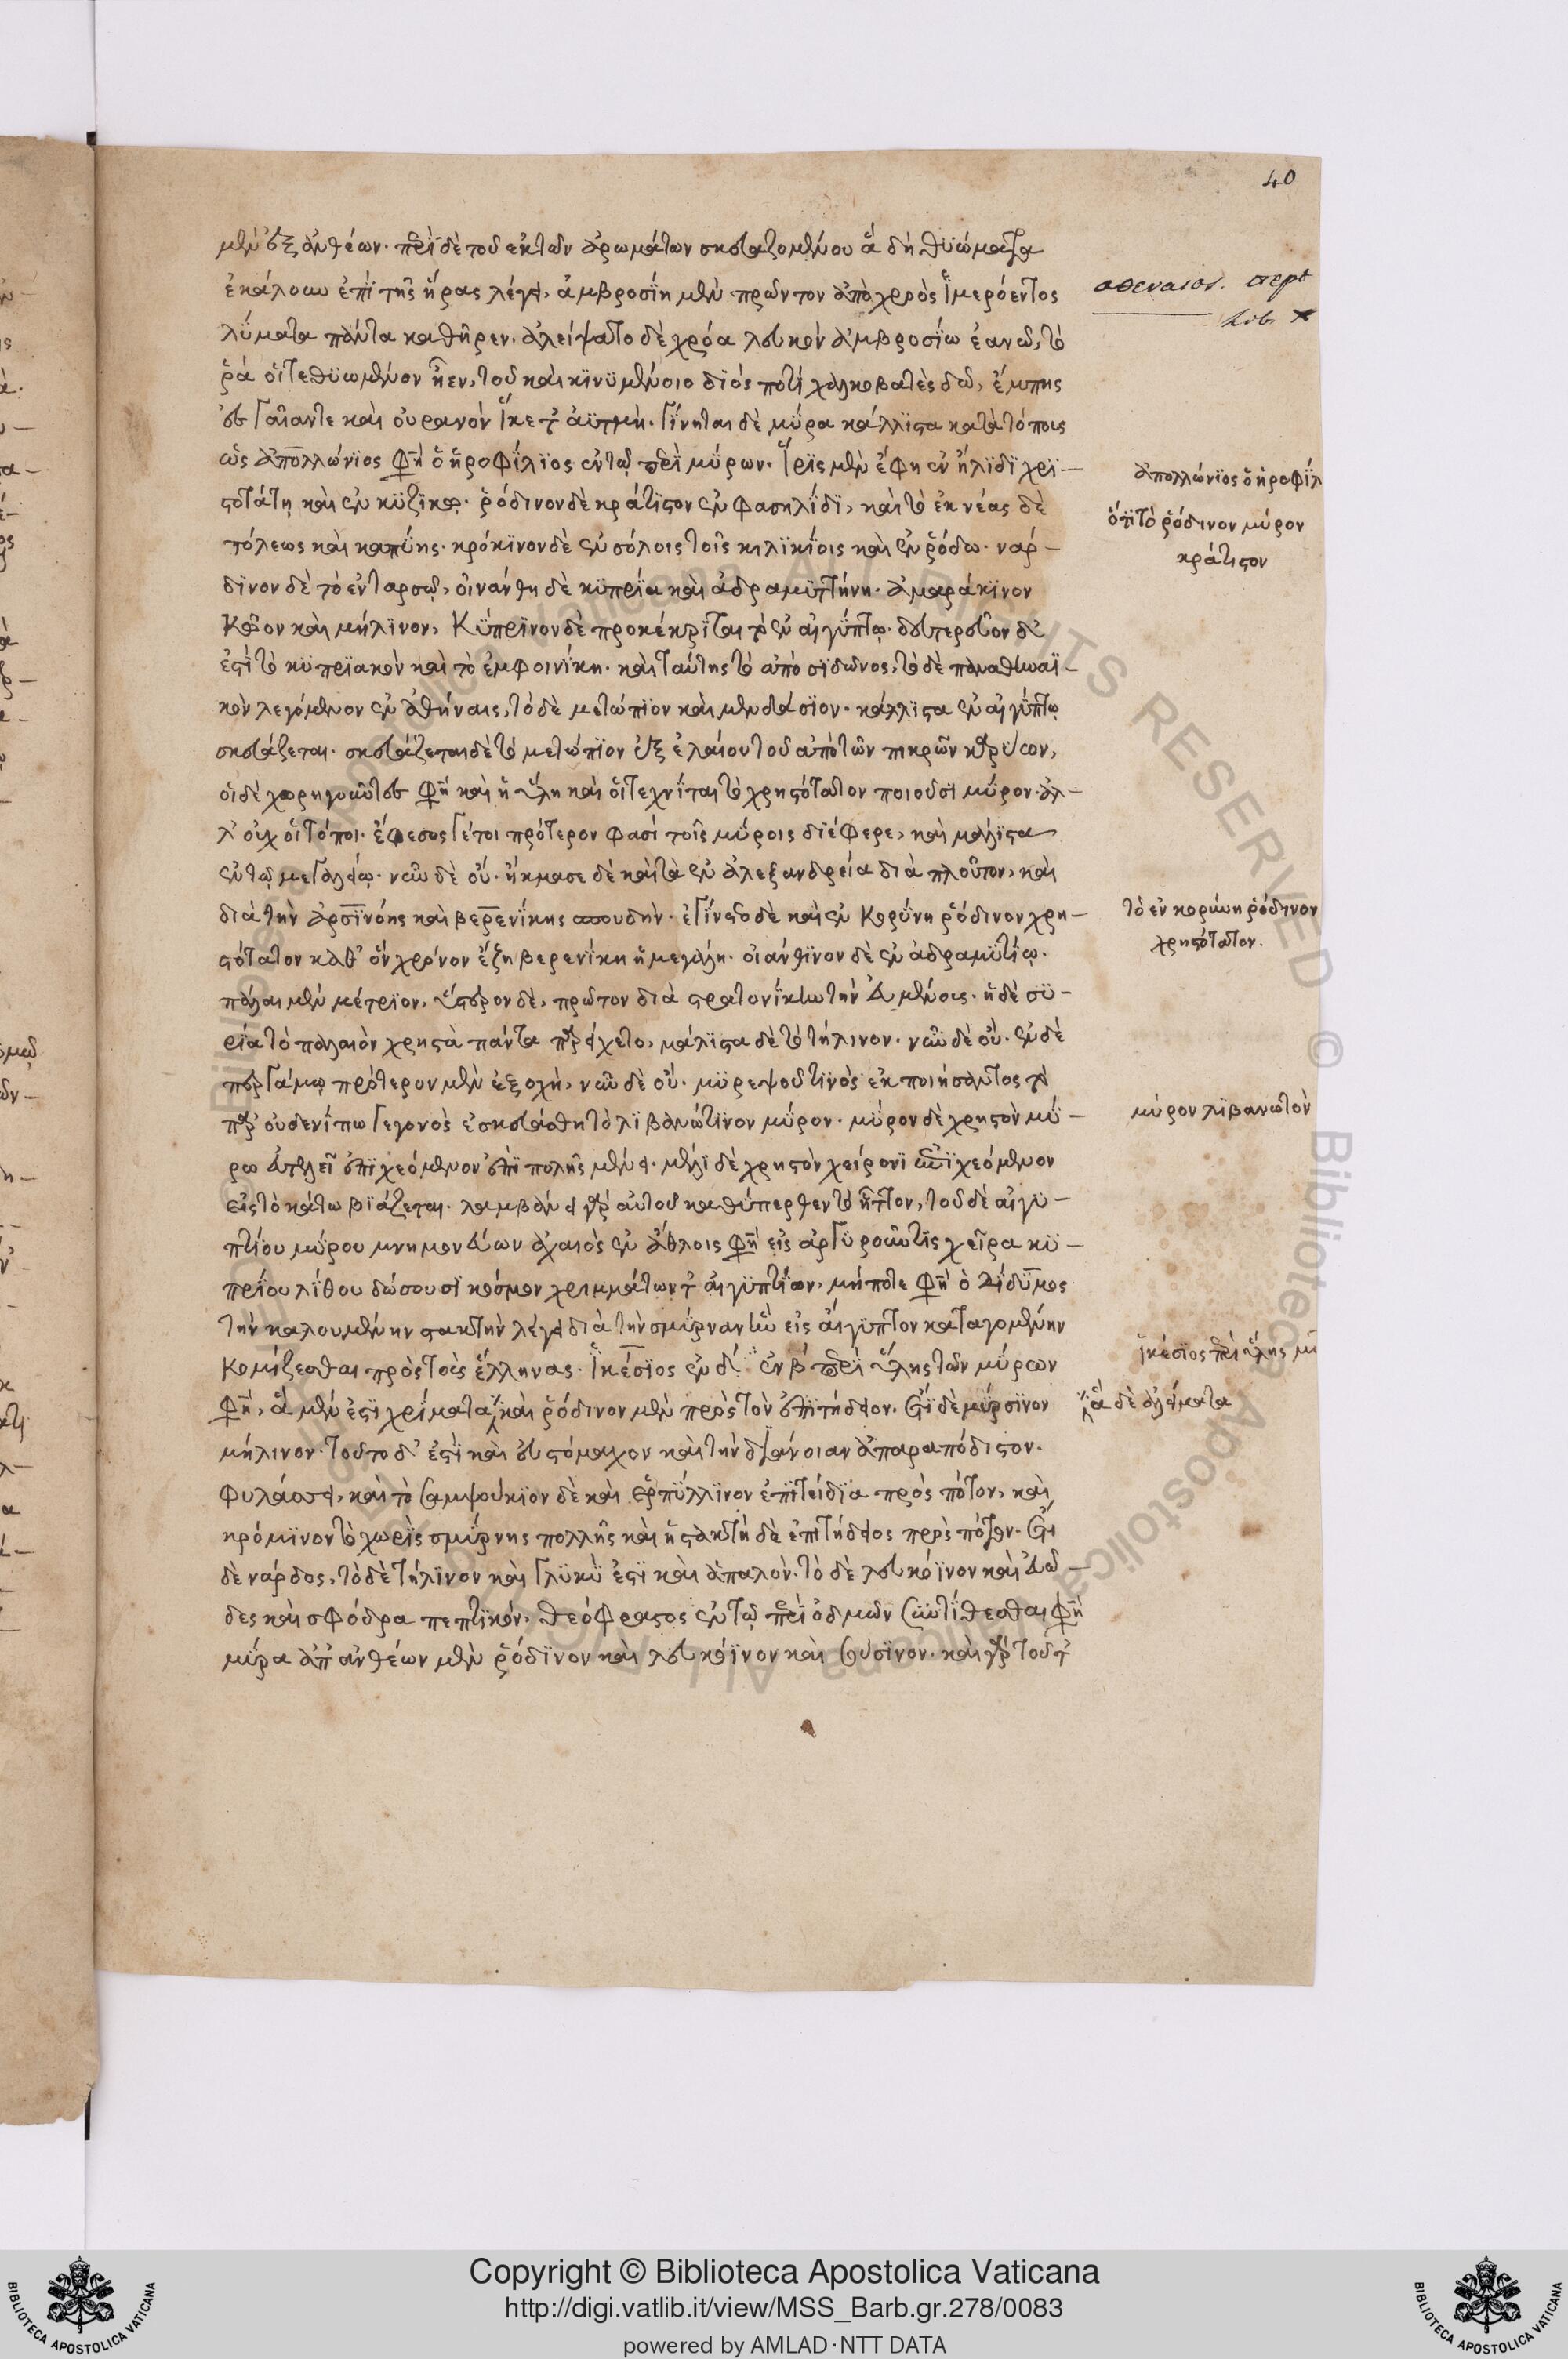 40
μὲν ἐξ ἀνθέων. περὶ δὲ τοῦ ἐκ τῶν ἀρωμάτων σκευαζομένου ἃ δὴ θυώματα
ἐκάλουν ἐπὶ τῆς ἥρας λέγει, ἀμβροσίη μὲν πρῶτον ἀπὸ χροὸς ἱμερόεντος
λύματα πάντα κάθηρεν. ἀλείψατο δὲ χρόα λευκὸν ἀμβροσίω ἑανῶ, τό
ῥά οἱ τεθυωμένον ἦεν, τοῦ καὶ κινυμένοιο διὸς ποτὶ χαλκοβατὲς δῶ, ἔμπης
ἐς γαῖάν τε καὶ οὐρανὸν ἵκετ' ἀϋτμή. γίνεται δὲ μύρα κάλλιστα κατὰ τόπους
ὡς ἀπολλώνιος φησὶν ὁ ἡροφίλιος ἐν τῷ περὶ μύρων. ἶρις μὲν ἔφη ἐν ἤλιδι χρι–
στοτάτη καὶ ἐν κυζίκῳ. ῥόδινον δὲ κράτιστον ἐν φασηλίδι, καὶ τὸ ἐκ νέας δὲ
πόλεως καὶ καπύης. κρόκινον δὲ ἐν σόλοις τοῖς κιλικίοις καὶ ἐν ῥόδω. ναρ–
δινον δὲ τὸ ἐν ταρσῷ, οἰνάνθη δὲ κυπρία καὶ ἀδραμυττήνη. ἀμαράκινον
κῷον καὶ μήλινον, κύπρινον δὲ προκέκριται τὸ ἐν αἰγύπτῳ. δευτερεῦον δ'
ἐστὶ τὸ κυπριακὸν καὶ τὸ ἐμφοινίκη. καὶ ταύτης τὸ ἀπὸ σιδῶνος, τὸ δὲ παναθηναϊ–
κὸν λεγόμενον ἐν ἀθήναις, τὸ δὲ μετώπιον καὶ μενδήσιον. κάλλιστα ἐν αἰγύπτῳ
σκευάζεται. σκευάζεται δὲ τὸ μετώπιον ἐξ ἐλαίου τοῦ ἀπὸ τῶν πικρῶν καρύων,
οἱ δὲ χορηγοῦντες φησὶ καὶ ἡ ὕλη καὶ οἱ τεχνῖται τὸ χρηστότατον ποιοῦσι μύρον. ἀλ–
λ' οὐχ οἱ τόποι. ἔφεσος γέ τοι πρότερον φασὶ τοῖς μύροις διέφερε, καὶ μάλιστα
ἐν τῷ μεγαλείῳ. νῦν δὲ οὔ. ἤκμασε δὲ καὶ τὰ ἐν ἀλεξανδρεία διὰ πλοῦτον, καὶ
διὰ τὴν ἀρσινόης καὶ βερενίκης σπουδήν. ἐγίνετο δὲ καὶ ἐν κορύνη ῥόδινον χρη–
στότατον καθ' ὃν χρόνον ἔζη βερενίκη ἡ μεγάλη. οἰάνθινον δὲ ἐν ἀδραμυτίῳ.
πάλαι μὲν μέτριον, ὕστερον δὲ, πρῶτον διὰ στρατονίκην τὴν εὐμένους. ἡ δὲ συ–
ρία τὸ παλαιὸν χρηστὰ πάντα παρείχετο, μάλιστα δὲ τὸ τήλινον. νῦν δὲ οὔ. ἐν δὲ
περγάμῳ πρότερον μὲν ἐξοχὴ, νῦν δὲ οὔ. μυρεψοῦ τινὸς ἐκποιήσαντος τὸ
παρ' οὐδενί πω γεγονὸς ἐσκευάσθη τὸ λιβανώτινον μύρον. μύρον δὲ χρηστὸν μύ–
ρω εὐτελεῖ ἐπιχεόμενον ἐπιπολῆς μένει. μέλι δὲ χρηστὸν χείρονι ἐπιχεόμενον
εἰς τὸ κάτω βιάζεται. λαμβάνει γὰρ αὐτοῦ καθύπερθεν τὸ ἧττον, τοῦ δὲ αἰγυ–
πτίου μύρου μνημονεύων ἀχαιὸς ἐν ἄθλοις φησὶν εἰς ἀργυροῦντις χεῖρα κυ–
πρίου λίθου δώσουσι κόσμον χριμμάτων τ' αἰγυπτίων, μήποτε φησὶν ὁ δίδυμος
τὴν καλουμένην στακτὴν λέγει διὰ τὴν σμύρναν ἣν εἰς αἴγυπτον καταγομένην
κομίζεσθαι πρὸς τοὺς ἕλληνας. ἱκέσιος ἐν δ' ἐν β περὶ ὕλης τῶν μύρων
φησὶν, ἃ μὲν ἐστὶ χρίματα καὶ ῥόδινον μὲν πρὸς τὸν ἐπιτήδειον. ἔτι δὲ μύρσινον
μήλινον. τοῦτο δ' ἐστὶ καὶ εὐστόμαχον καὶ τὴν διάνοιαν ἀπαραπόδιστον.
φυλάσσει, καὶ τὸ σαμψούκιον δὲ καὶ ἑρπύλλινον ἐπιτείδια πρὸς πότον, καὶ
κρόμινον τὸ χωρὶς σμύρνης πολλῆς καὶ ἡ στακτὴ δὲ ἐπιτήδειος πρὸς πότον. ἔτι
δὲ νάρδος, τὸ δὲ τήλινον καὶ γλυκὺ ἐστὶ καὶ ἁπαλόν. τὸ δὲ λευκόινον καὶ εὐῶ–
δες καὶ σφόδρα πεπτικόν, θεόφραστος ἐν τῷ περὶ ὀδμῶν συντίθεσθαι φησὶν
μύρα ἀπ' ἀνθέων μὲν ῥόδινον καὶ λευκόινον καὶ σούσινον. καὶ γὰρ τοῦτ'
αθεναιος. περι
lib. x
ἀπολλώνιος ὁ ἡροφίλ
ὅτι τὸ ῥόδινον μύρον
κράτιστον
τὸ ἐν κορύνη ῥόδινον
χρηστότατον.
μύρον λιβανωτὸν
ἱκέσιος περὶ ὕλης μύ
ἃ δὲ ἀλείμματα
Copyright © Biblioteca Apostolica Vaticana
http://digi.vatlib.it/view/MSS_Barb.gr.278/0083
powered by AMLAD·NTT DATA
BIBLIOTECA APOSTOLICA VATICANA
BIBLIOTECA APOSTOLICA VATICANA